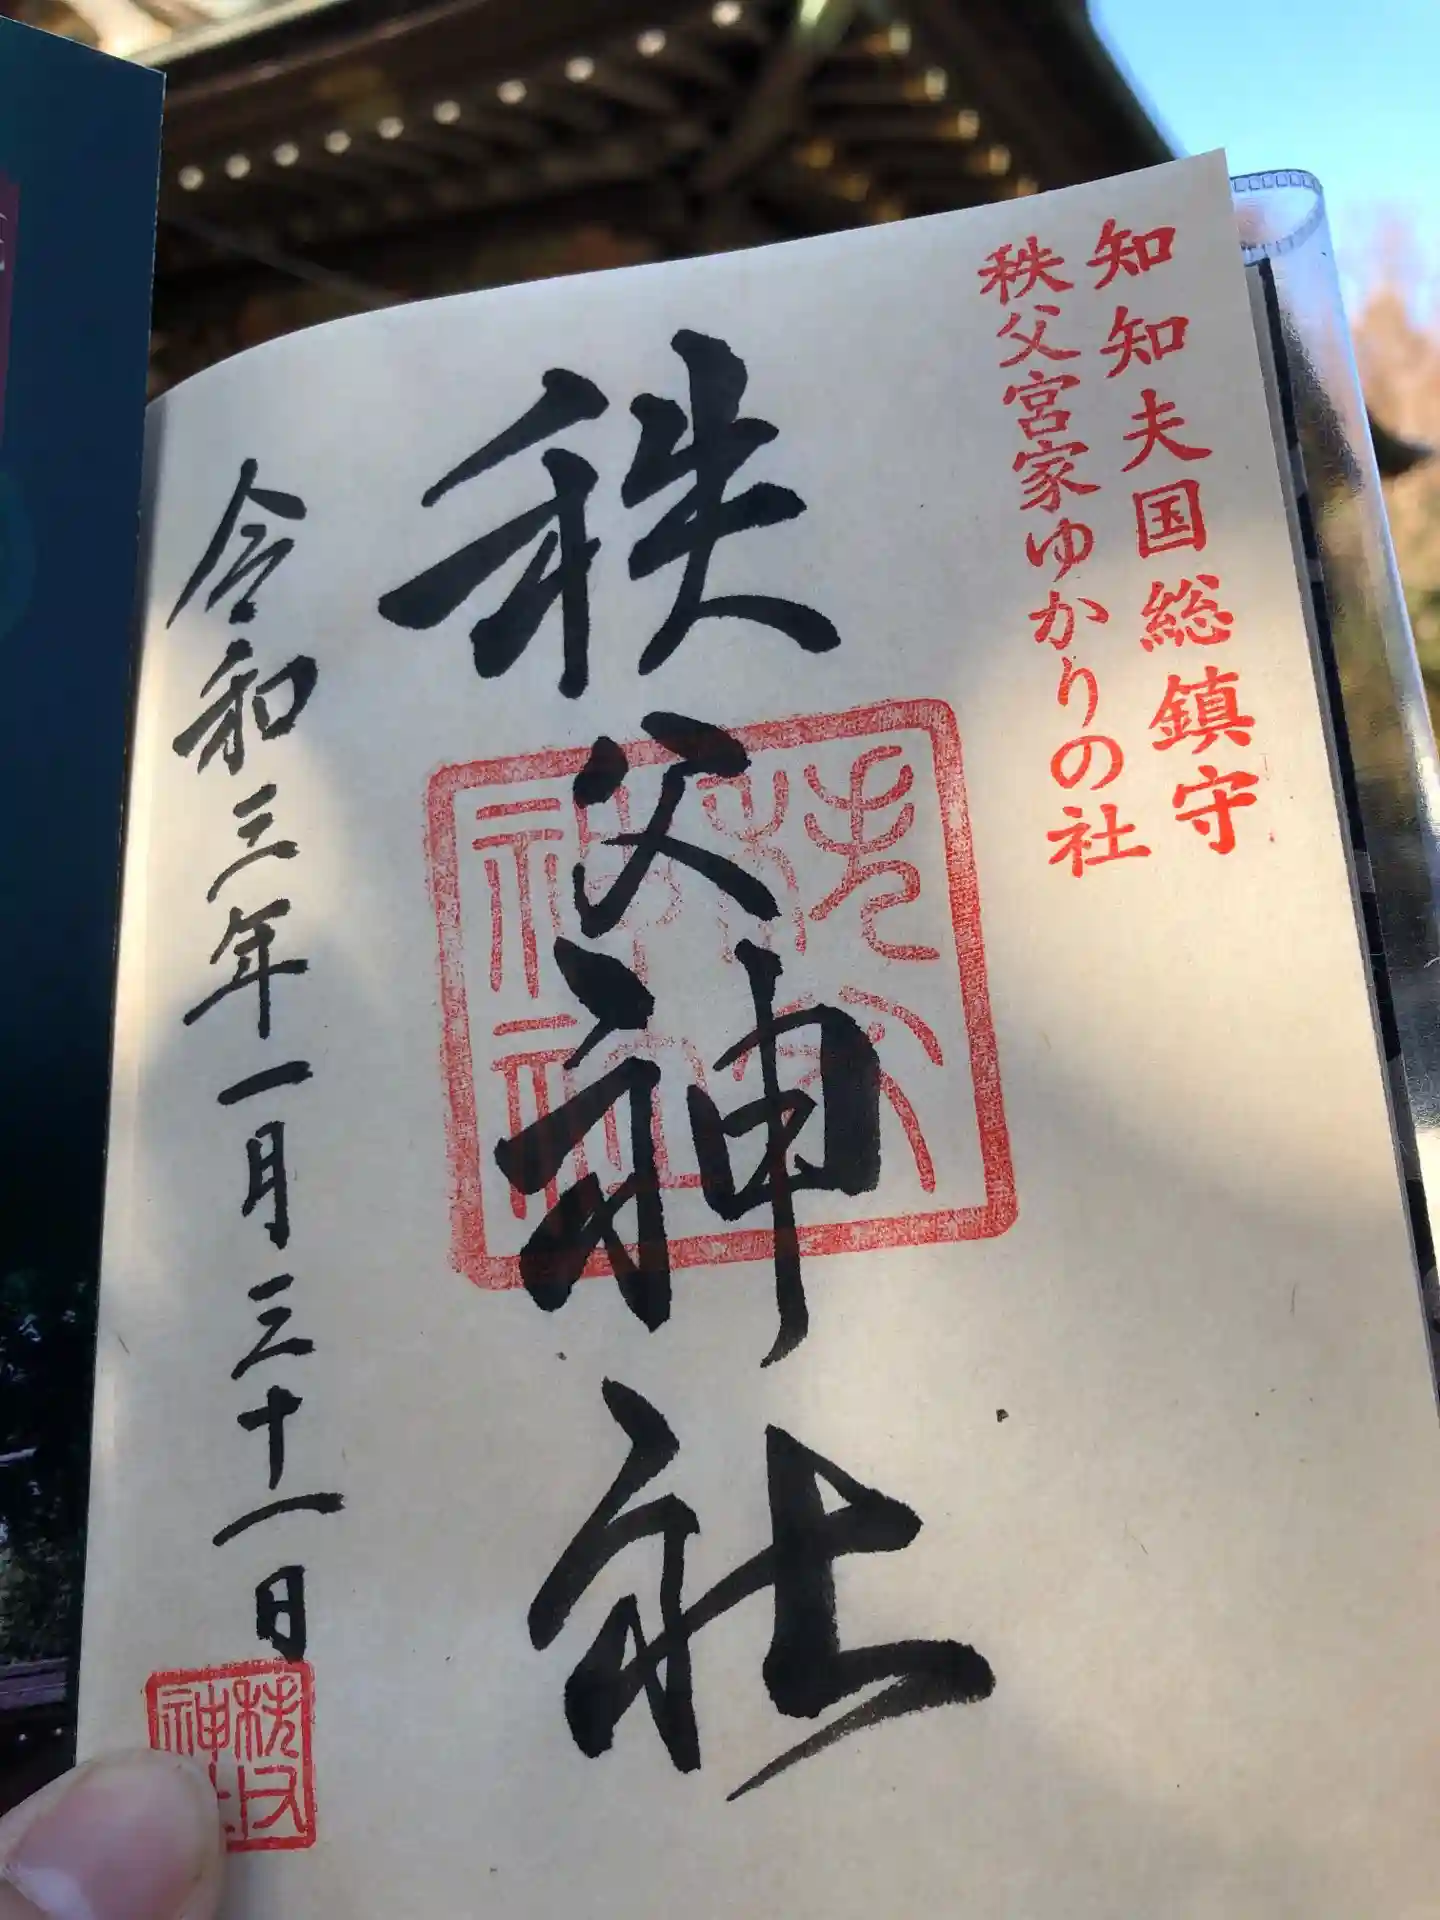 知知夫国総鎮守
秩父宮家ゆかりの社
秩父神社
令和三年一月三十一日
秩父神社